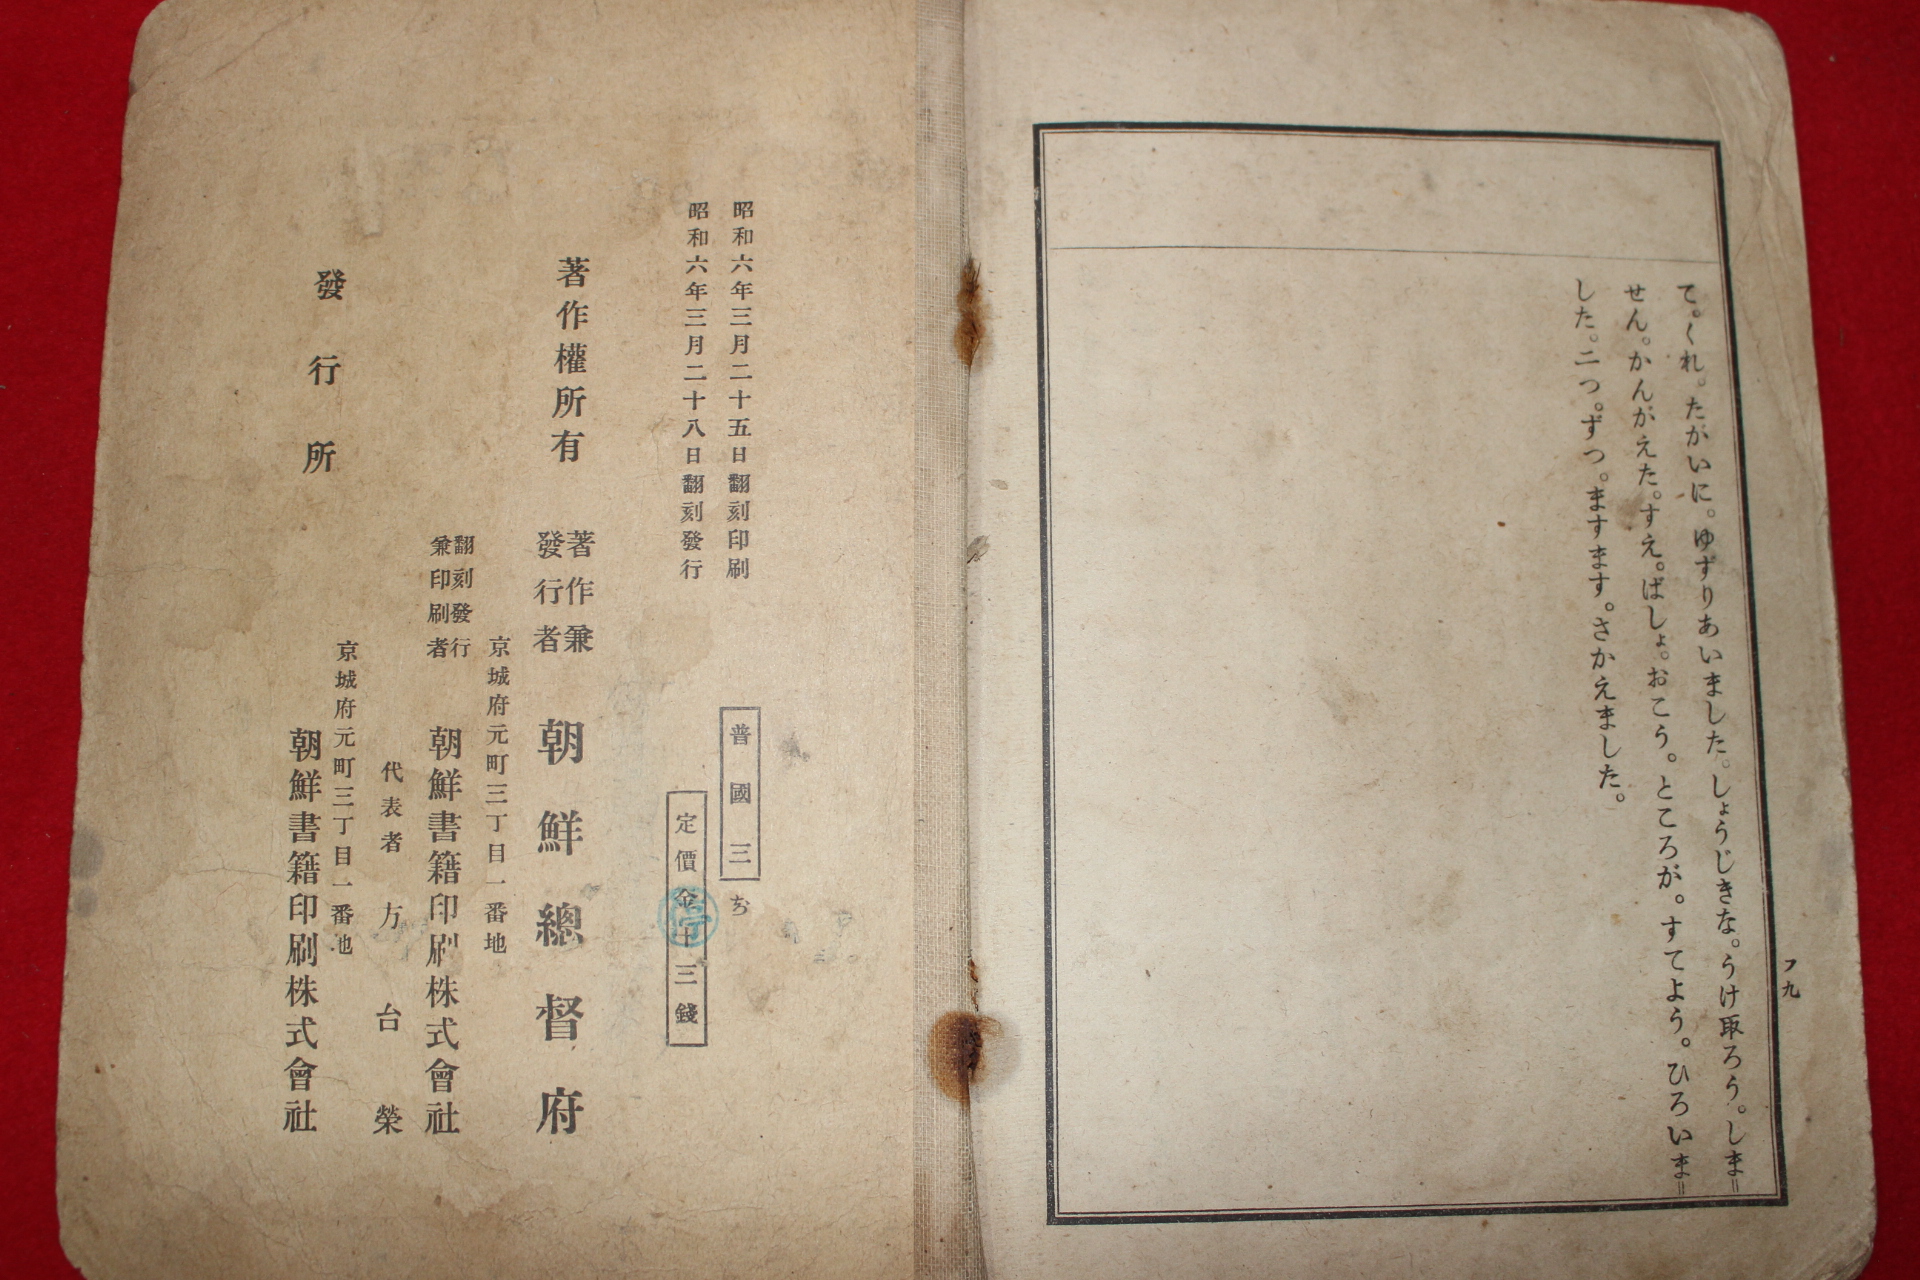 て。くれ。たがいに。ゆずりあいました。しょうじきな。うけ取ろう。しま=
せん。かんがえた。すえ。ばしょ。おこう。ところが。すてよう。ひろいま=
した。二つ。ずつ。ますます。さかえました。
昭和六年三月二十五日翻刻印刷
昭和六年三月二十八日翻刻發行
普國三
定價金十三錢
著作權所有
著作兼
發行者
朝鮮總督府
京城府元町三丁目一番地
翻刻發行
兼印刷者
朝鮮書籍印刷株式會社
代表者 方台榮
京城府元町三丁目一番地
發行所
朝鮮書籍印刷株式會社